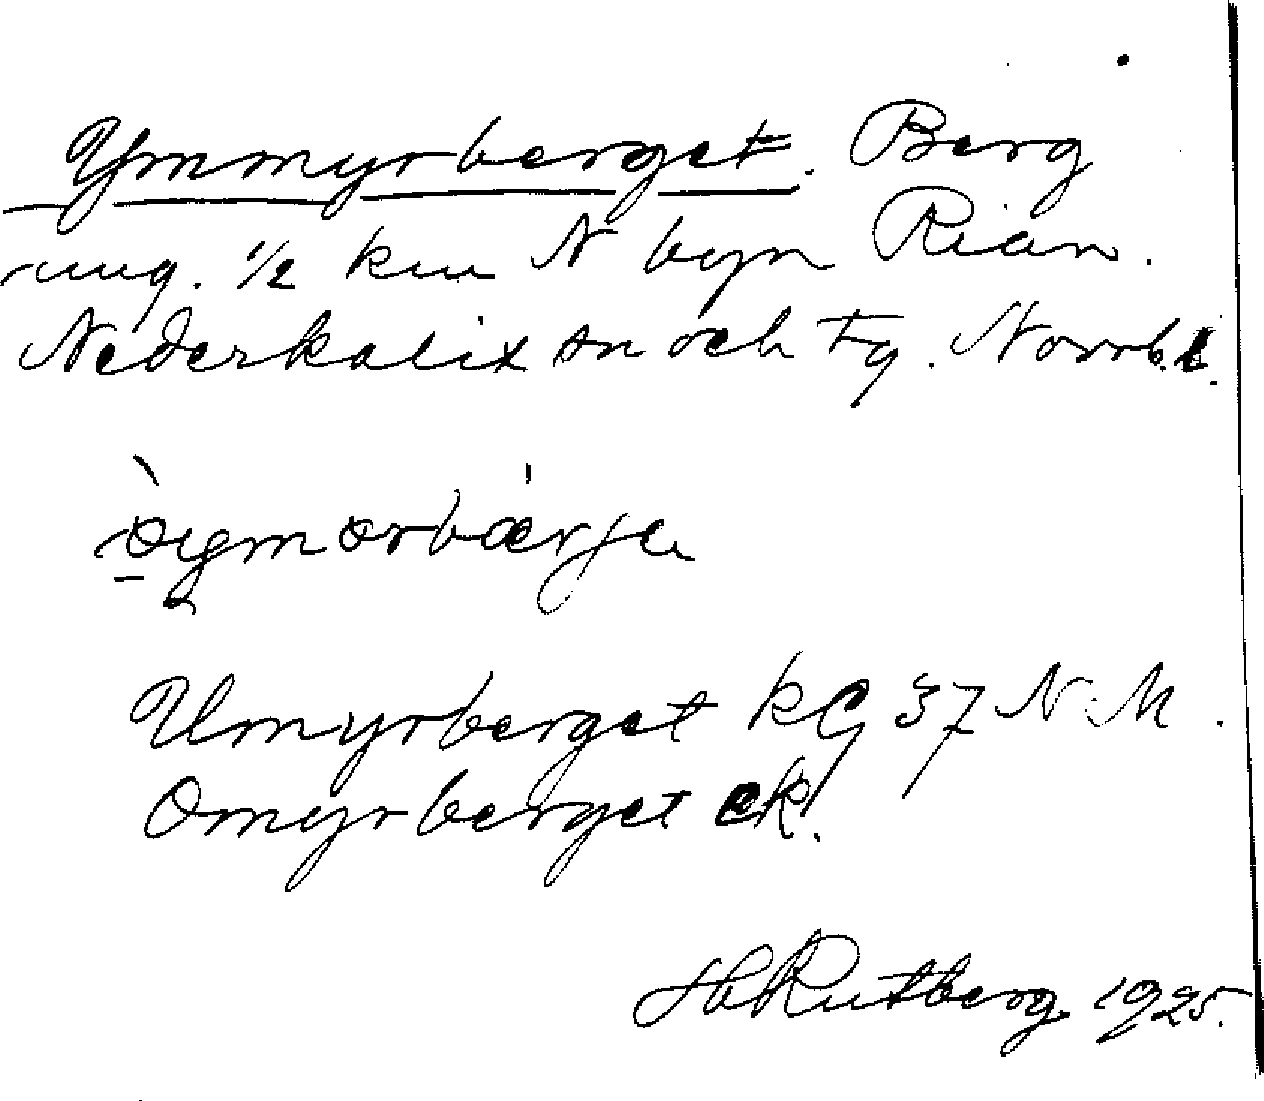 Ymmyrberget. Berg
ung. 1/2 km N byn Rian.
Nederkalix sn och tg. Norrb. l.
Umyrberget kg 37 N. M.
Omyrberget ek.
H Rutberg 1925.